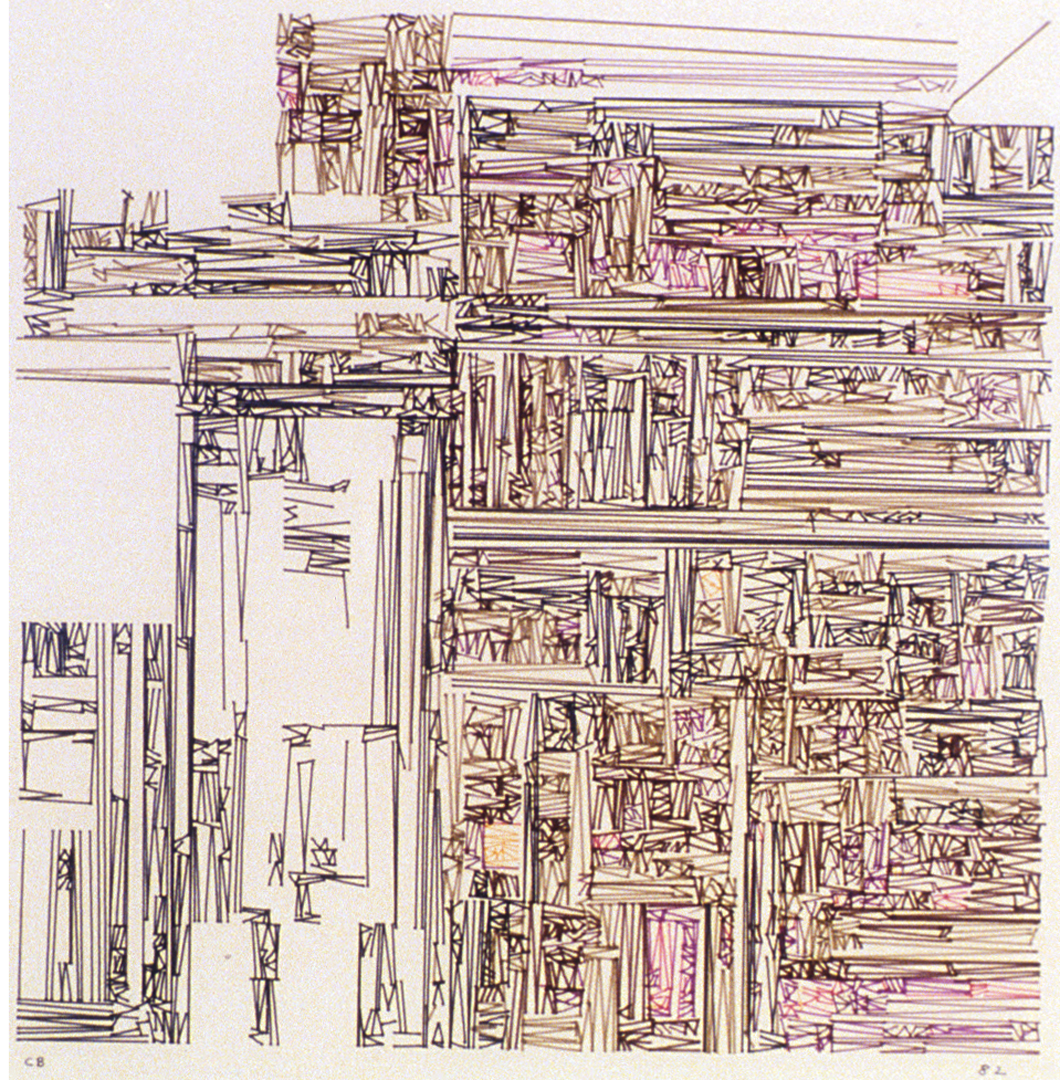 CB
82